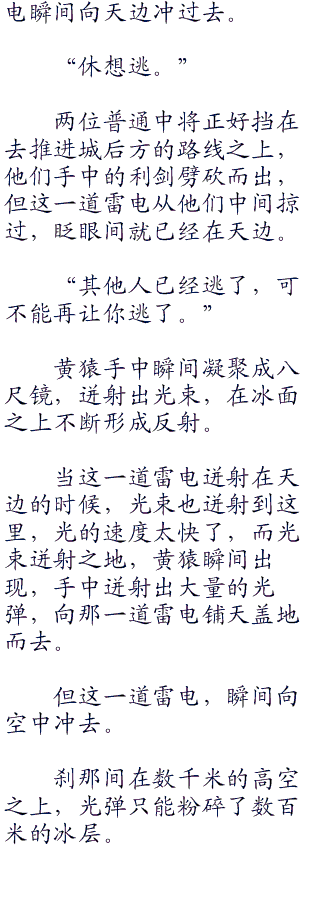 电瞬间向天边冲过去。
“休想逃。”
两位普通中将正好挡在
去推进城后方的路线之上，
他们手中的利剑劈砍而出，
但这一道雷电从他们中间掠
过，眨眼间就已经在天边。
“其他人已经逃了，可
不能再让你逃了。”
黄猿手中瞬间凝聚成八
尺镜，迸射出光束，在冰面
之上不断形成反射。
当这一道雷电迸射在天
边的时候，光束也迸射到这
里，光的速度太快了，而光
束迸射之地，黄猿瞬间出
现，手中迸射出大量的光
弹，向那一道雷电铺天盖地
而去。
但这一道雷电，瞬间向
空中冲去。
刹那间在数千米的高空
之上，光弹只能粉碎了数百
米的冰层。